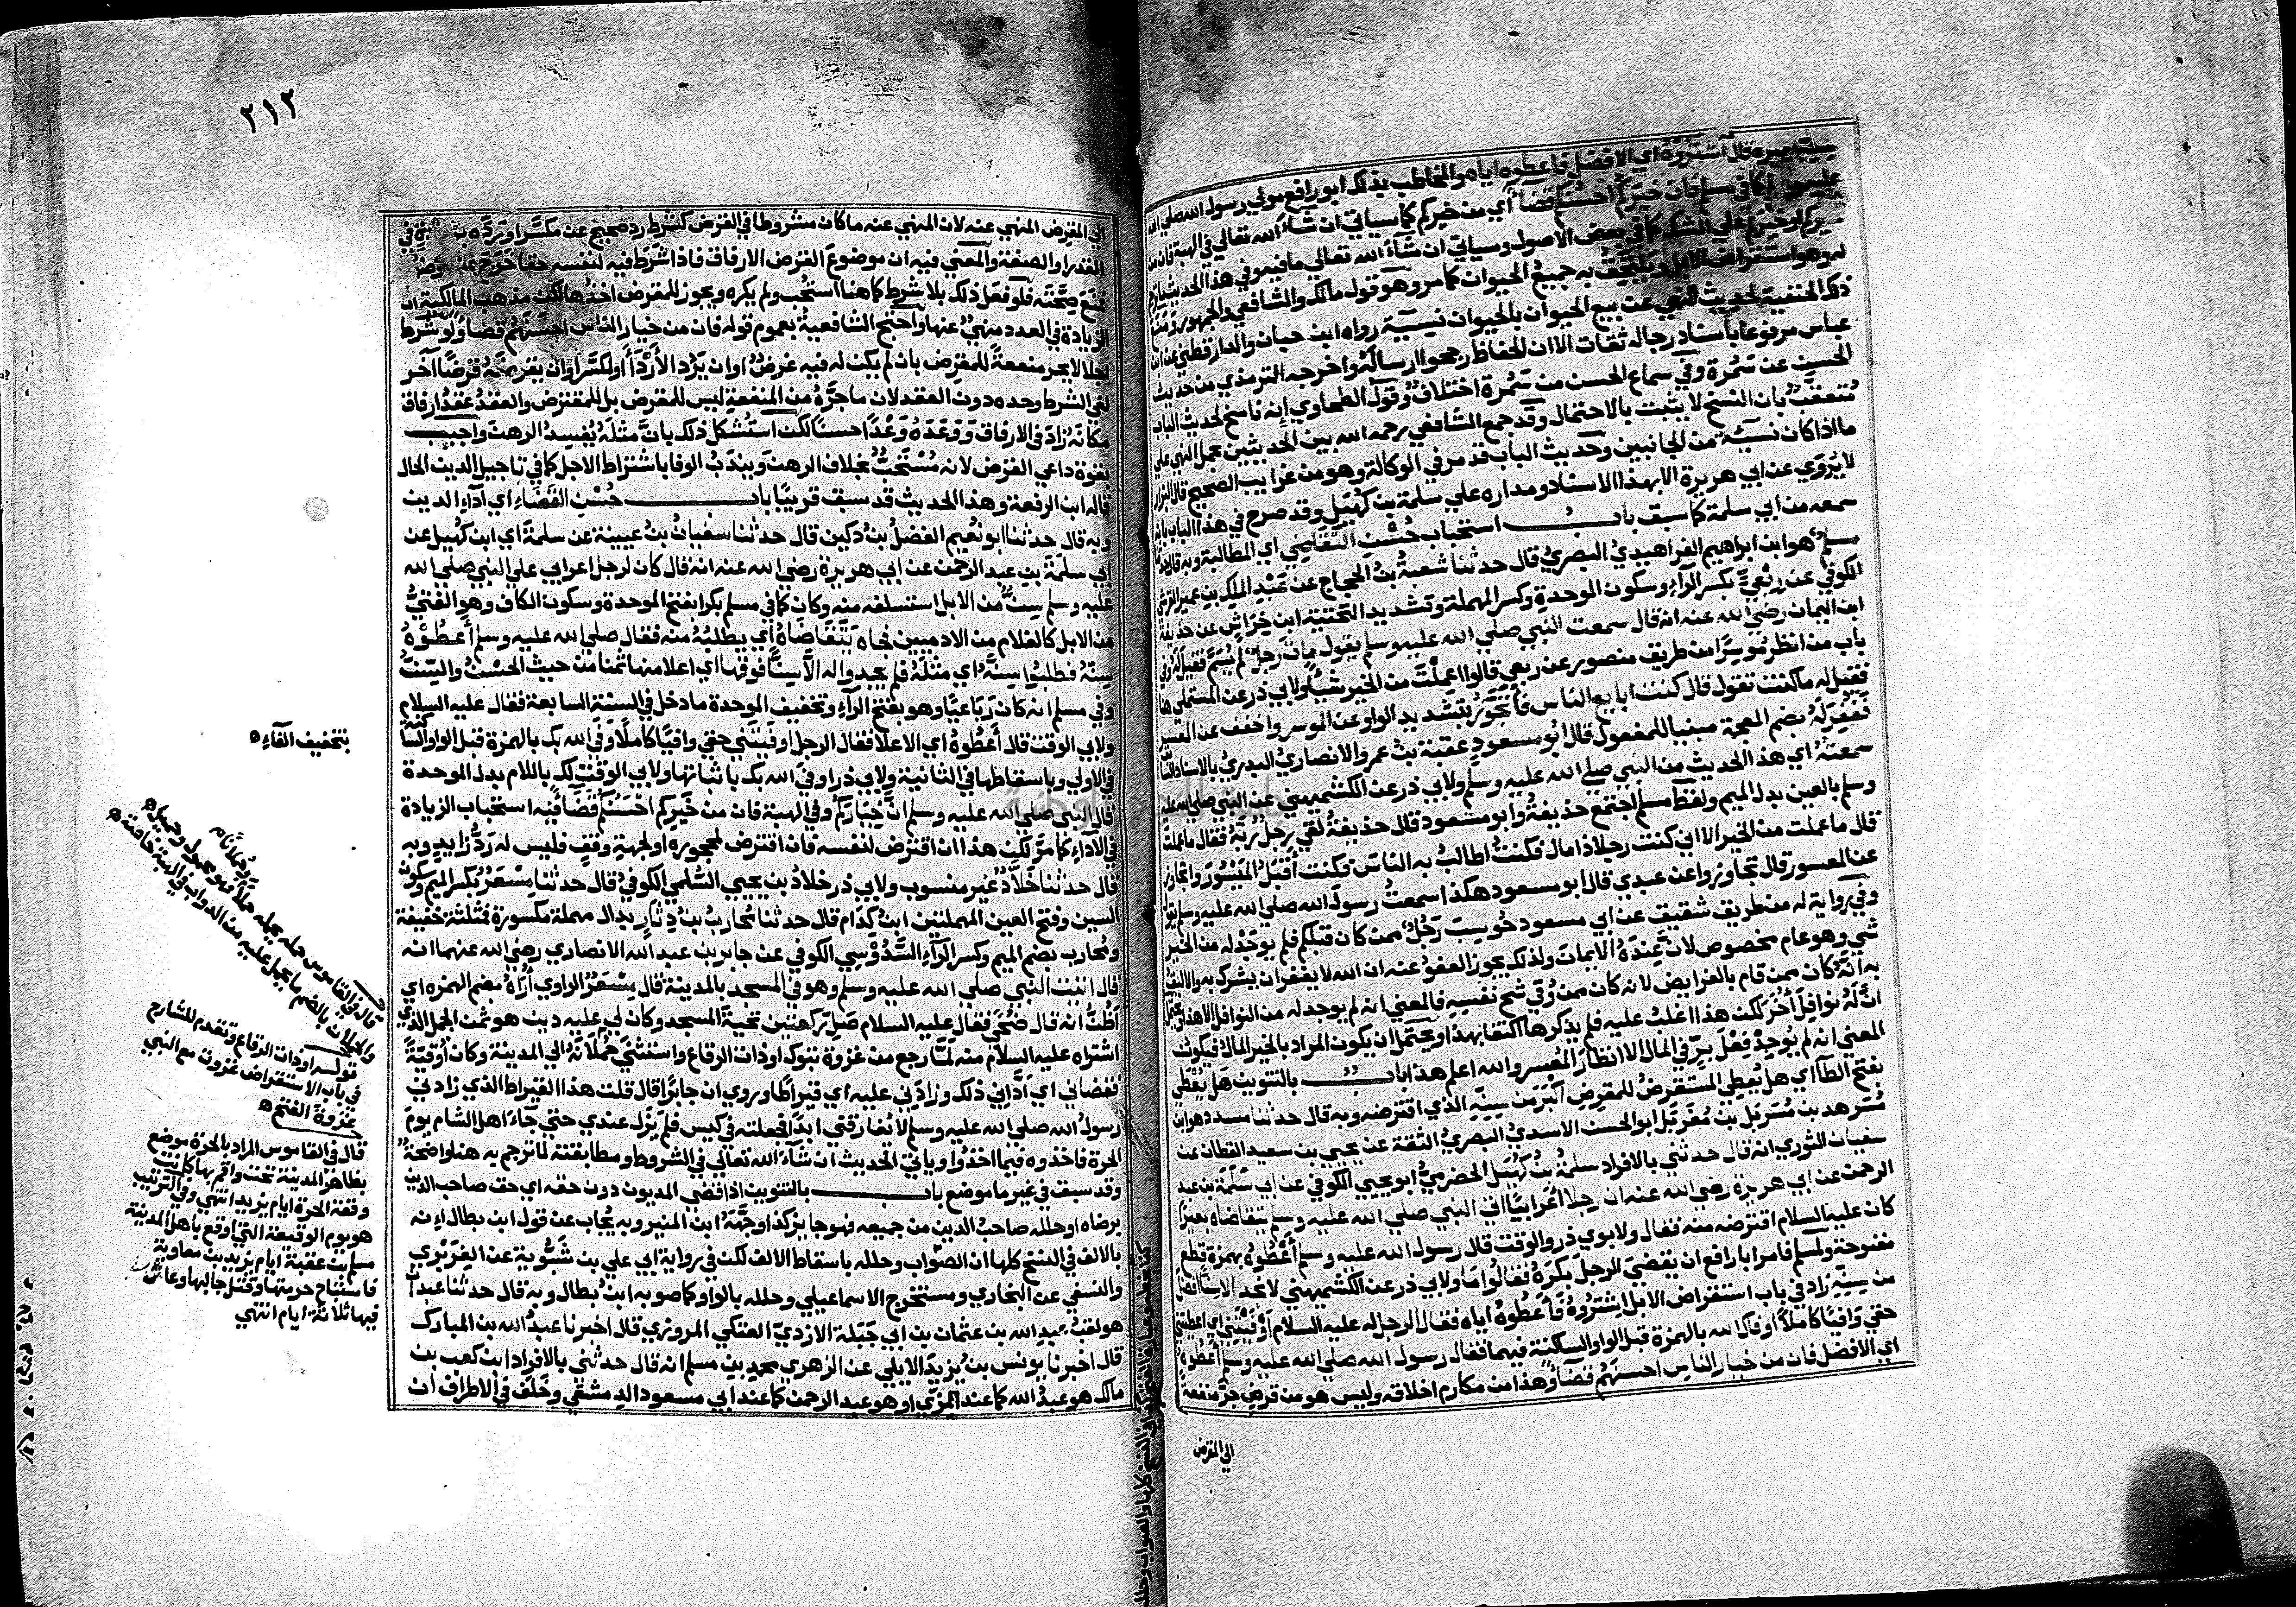 بعيره قال اشتروه اي الافضل فاعطوه اياه والمخاطب بذلك ابو رافع مولي رسول الله صلي الله
عليه كما في مسلم فان خيركم احسنكم قضا اي من خيركم كما سياتي ان شاء الله تعالي في الهبة فان من
خيركم او خيركم علي الشك كما في بعض الاصول وسياتي ان شاء الله تعالي ما فيه وفي هذا الحديث
له وهو استقراض الابل ويلتحق به جميع الحيوان كما مر وهو قول مالك والشافعي والجمهور ومنع
ذلك الحنفية لحديث النهي عن بيع الحيوان بالحيوان نسيئة رواه ابن حبان والدارقطني عن ابن
عباس مرفوعا باسناد رجاله ثقات الا ان الحفاظ رجحوا ارساله واخرجه الترمذي من حديث
الحسن عن سمرة وفي سماع الحسن من سمرة اختلاف وقول الطحاوي انه ناسخ لحديث الباب
متعقب بان النسخ لا يثبت بالاحتمال وقد جمع الشافعي رحمه الله بين الحديثين بحمل النهي علي
ما اذا كان نسيئة من الجانبين وحديث الباب قد مر في الوكالة وهو من غرايب الصحيح قال البزار
لا يروي عن ابي هريرة الا بهذا الاسناد ومداره علي سلمة بن كهيل وقد صرح في هذا الباب بانه
سمعه من ابي سلمة كما سبق باب استحباب حسن التقاضي اي المطالبة وبه قال حدثنا
مسلم هو ابن ابراهيم الفراهيدي البصري قال حدثنا شعبة بن الحجاج عن عبد الملك بن عمير القرشي
الكوفي عن ربعي بكسر الراء وسكون الموحدة وكسر المهملة وتشديد التحتية ابن خراش عن حذيفة
ابن اليمان رضي الله عنه انه قال سمعت النبي صلي الله عليه وسلم يقول مات رجل لم يسم فقيل له وفي
باب من انظر موسرا من طريق منصور عن ربعي قالوا اعملت من الخير شيئا ولابي ذر عن المستملي هنا
فقيل له ما كنت تقول قال كنت ابايع الناس فاتجوز بتشديد الواو عن الموسر واخفف عن المعسر
فغفر له بضم المعجمة مبنيا للمفعول قال ابو مسعود عقبة بن عمرو الانصاري البدري بالاسناد السابق
سمعته اي هذا الحديث من النبي صلي الله عليه وسلم ولابي ذر عن الكشميهني عن النبي صلي الله عليه
وسلم بالعين بدل الميم ولفظ مسلم اجتمع حذيفة وابو مسعود قال حذيفة لقي رجل ربه فقال ما عملت
قال ما عملت من الخير الا اني كنت رجلا ذا مال فكنت اطالب به الناس فكنت اقبل الميسور واتجاوز
عن المعسور قال تجاوزوا عن عبدي قال ابو مسعود هكذا سمعت رسول الله صلي الله عليه وسلم يقول
وفي رواية له من طريق شقيق عن ابي مسعود حوسب رجل ممن كان قبلكم فلم يوجد له من الخير
شي وهو عام مخصوص لان عنده الايمان ولذلك يجوز العفو عنه ان الله لا يغفر ان يشرك به والاليق
به انه كان ممن قام بالفرايض لانه كان ممن وقي شح نفسه فالمعني انه لم يوجد له من النوافل الا هذا ويحتمل
ان له نوافل اخر لكن هذا اغلب عليه فلم يذكرها اكتفا بهذا ويحتمل ان يكون المراد بالخير المال فيكون
المعني انه لم يوجد له فعل بر في المال الا انظار المعسر والله اعلم هذا باب بالتنوين هل يعطي
بفتح الطا اي هل يعطي المستقرض للمقرض اكبر من سنه الذي اقترضه وبه قال حدثنا مسدد هو ابن
مسرهد بن مسربل بن مغربل ابو الحسن الاسدي البصري الثقة عن يحيي بن سعيد القطان عن
سفيان الثوري انه قال حدثني بالافراد سلمة بن كهيل الحضرمي ابو يحيي الكوفي عن ابي سلمة بن عبد
الرحمن عن ابي هريرة رضي الله عنه ان رجلا اعرابيا اتي النبي صلي الله عليه وسلم يتقاضاه بعيرا
كان عليه السلام اقترضه منه فقال ولابوي ذر والوقت قال رسول الله عليه وسلم اعطوه بهمزة قطع
مفتوحة ولمسلم فامر ابا رافع ان يقضي الرجل بكره فقالوا ما ولابي ذر عن الكشميهني لا نجد الا سنا افضل
من سنه زاد في باب استقراض الابل اشتروه فاعطوه اياه فقال الرجل له عليه السلام اوفيتني اي اعطيتني
حقي وافيا كاملا اوفاك الله بالهمزة قبل الواو الساكنة فيهما فقال رسول الله صلي الله عليه وسلم اعطوه
اي الافضل فان من خيار الناس احسنهم قضاء وهذا من مكارم اخلاقه وليس هو من قرض جر منفعة
الي المقرض
٣١٣
الي المقرض المنهي عنه لان المنهي عنه ما كان مشروطا في القرض كشرط رد صحيح عن مكسر او برده بزيادة في
القدر او الصفة والمعني فيه ان موضوع القرض الارفاق فاذا شرط فيه لنفسه حقا خرج عن موضوعه
فمنع صحته فلو فعل ذلك بلا شرط كما هنا استحب ولم يكره ويجوز للمقرض اخذها لكن مذهب المالكية ان
الزيادة في العدد منهي عنها واحتج الشافعية بعموم قوله فان من خيار الناس احسنهم قضا ولو شرط
اجلا لا يجر منفعة للمقرض بان لم يكن له فيه غرض او ان يرد الاردأ او المكسر او ان يقرضه قرضا آخر
لغي الشرط وحده دون العقد لان ما جره من المنفعة ليس للمقرض بل للمقترض والعقد عقد ارفاق
فكأنه زاد في الارفاق ووعده وعدا حسنا لكن استشكل ذلك بان مثله يفسد الرهن واجيب
بقوة داعي القرض لانه مستحب بخلاف الرهن ويندب الوفا باشتراط الاجل كما في تاجيل الدين الحال
قاله ابن الرفعة وهذا الحديث قد سبق قريبا باب حسن القضاء اي اداء الدين
وبه قال حدثنا ابو نعيم الفضل بن دكين قال حدثنا سفيان بن عيينة عن سلمة اي ابن كهيل عن
ابي سلمة بن عبد الرحمن عن ابي هريرة رضي الله عنه انه قال كان لرجل اعرابي علي النبي صلي الله
عليه وسلم سن من الابل استسلفه منه وكان كما في مسلم بكرا بفتح الموحدة وسكون الكاف وهو الفتي
من الابل كالغلام من الادميين فجاه يتقاضاه اي يطلبه منه فقال صلي الله عليه وسلم اعطوه
سنه فطلبوا سنه اي مثله فلم يجدوا له الا سنا فوقها اي اعلا منها ثمنا من حيث الحسن والسن
وفي مسلم انه كان رباعيا وهو بفتح الراء وتخفيف الموحدة ما دخل في السنة السابعة فقال عليه السلام
ولابي الوقت قال اعطوه اي الاعلا فقال الرجل اوفيتني حقي وافيا كاملا وفي الله بك بالهمزة قبل الواو الساكنة
في الاولي وباسقاطها في الثانية ولابي ذر اوفي الله بك باثباتها ولابي الوقت لك باللام بدل الموحدة
قال النبي صلي الله عليه وسلم ان خياركم وفي الهبة فان من خيركم احسنكم قضا فيه استحباب الزيادة
في الاداء كما مر لكن هذا ان اقترض لنفسه فان اقترض لمحجوره او لجهة وقف فليس له رد زايد وبه
قال حدثنا خلاد غير منسوب ولابي ذر خلاد بن يحيي السلمي الكوفي قال حدثنا مسعر بكسر الميم وسكون
السين وفتح العين المهملتين ابن كدام قال حدثنا محارب بن دثار بدال مهملة مكسورة فمثلثة خفيفة
ومحارب بضم الميم وكسر الراء السدوسي الكوفي عن جابر بن عبد الله الانصاري رضي الله عنهما انه
قال اتيت النبي صلي الله عليه وسلم وهو في المسجد بالمدينة قال مسعر الراوي اراه بضم الهمزه اي
اظن انه قال ضحي فقال عليه السلام صل ركعتين تحية المسجد وكان لي عليه دين هو ثمن الجمل الذي
اشتراه عليه السلام منه لما رجع من غزوة تبوك او ذات الرقاع واستثني حملانه الي المدينة وكان اوقية
فقضاني اي ادّاني ذلك وزادني عليه اي قيراطا وروي ان جابرا قال قلت هذا القيراط الذي زادني
رسول الله صلي الله عليه وسلم لا يفارقني ابدا فجعلته في كيس فلم يزل عندي حتي جاء اهل الشام يوم
الحرة فاخذوه فيما اخذوا وياتي الحديث ان شاء الله تعالي في الشروط ومطابقته لما ترجم به هنا واضحة
وقد سبق في غير ما موضع باب بالتنوين اذا قضي المديون دون حقه اي حق صاحب الدين
برضاه او حلله صاحب الدين من جميعه فهو جايز كذا وجهه ابن المنير وبه يجاب عن قول ابن بطال انه
بالالف في النسخ كلها ان الصواب وحلله باسقاط الالف لكن في رواية ابي علي بن شبوية عن الفربري
والنسفي عن البخاري ومستخرج الاسماعيلي وحلله بالواو كما صوبه ابن بطال وبه قال حدثنا عبدان
هو لقب عبد الله بن عثمان بن ابي جبلة الازدي العتكي المروزي قال اخبرنا عبد الله بن المبارك
قال اخبرنا يونس بن يزيد الايلي عن الزهري محمد بن مسلم انه قال حدثني بالافراد ابن كعب بن
مالك هو عبد الله كما عند المزي او هو عبد الرحمن كما عند ابي مسعود الدمشقي وخلف في الاطراف ان
بتخفيف الفاء
قال في القاموس حمله يحمله حملا فهو محمول وحميل
والحملان بالضم ما يحمل عليه من الدواب في الهبة خاصة
قوله او ذات الرقاع وتقدم للشارح
في باب الاستقراض غزوت مع النبي
غزوة الفتح
قال في القاموس المراد بالحرة موضع
بظاهر المدينة تحت واقم بها كانت
وقعة الحرة ايام يزيد انتهي وفي الترتيب
هو يوم الوقيعة التي اوقع باهل المدينة
مسلم بن عقبة ايام يزيد بن معاوية
فاستباح حرمتها وقتل
فيها ثلاثة ايام انتهي